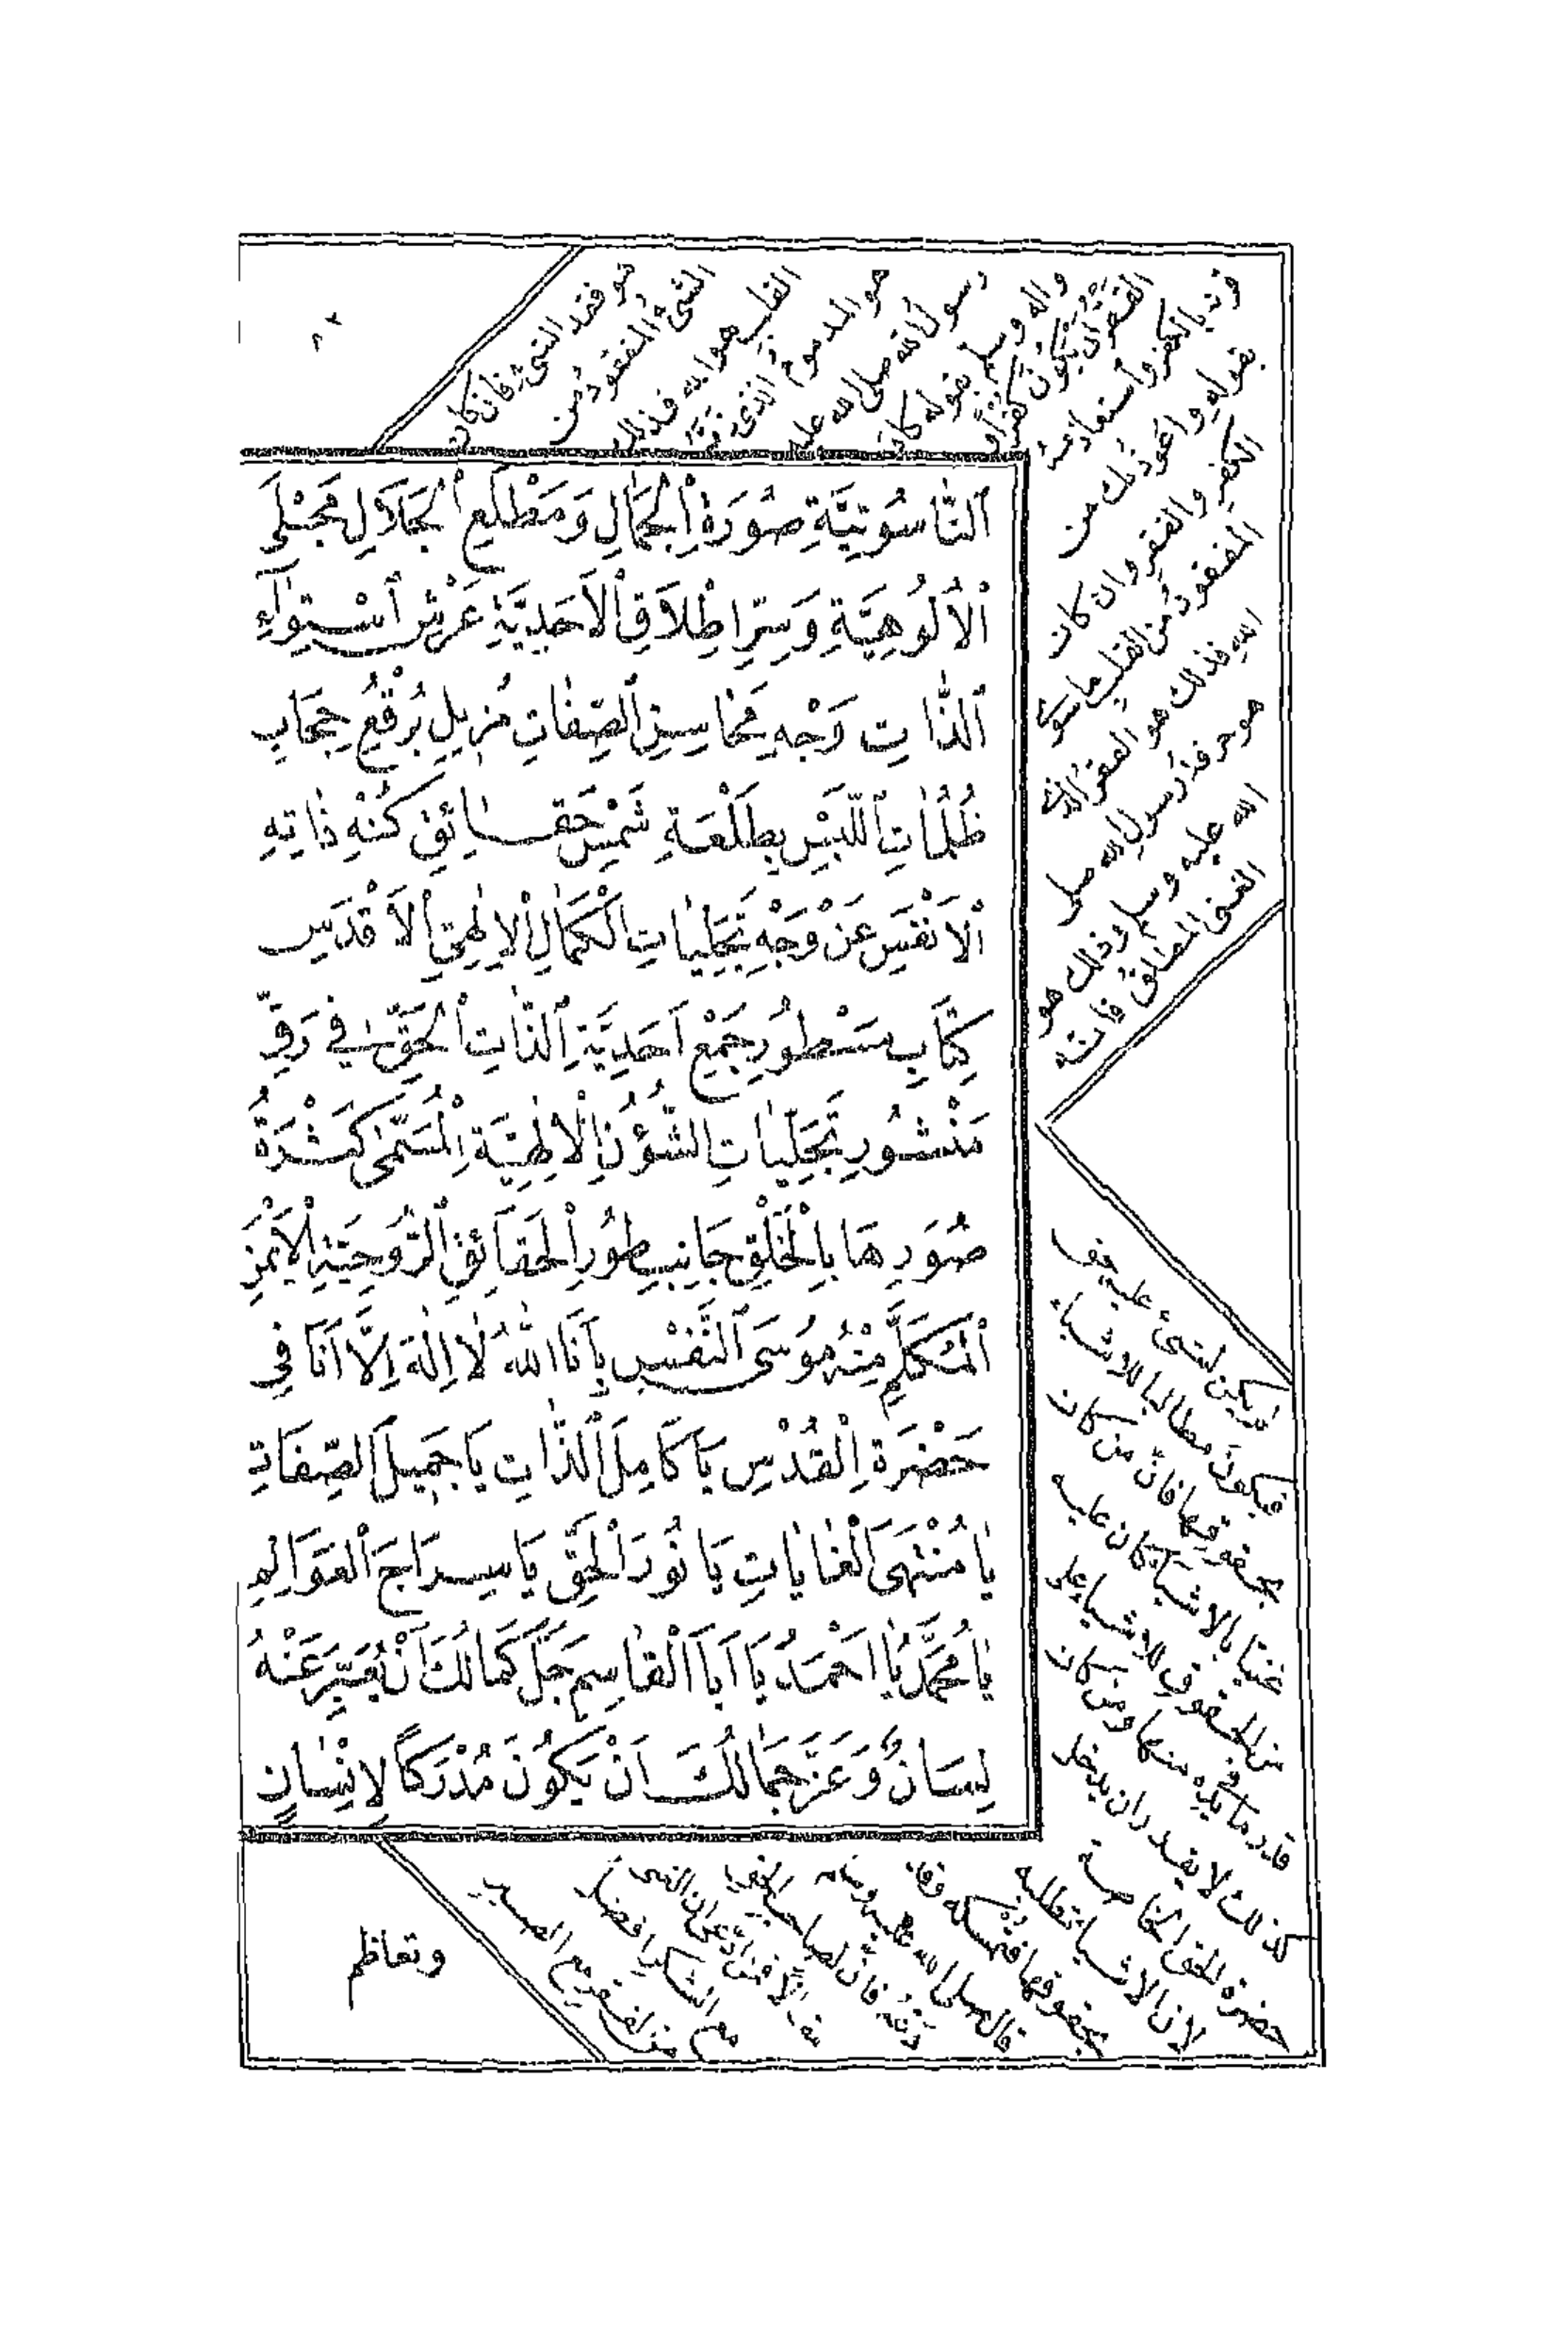 ٨٢
هو فقد الشئ فان كان
الشئ المفقود من
القلب هو الله فذلك
هو المذموم الذى ذمّه
رسول الله صلى الله عليه
واله وسلم بقوله كاد
الفقر ان يكون كفرًا و
قرنه بالكفر واستعاذ منه
بقوله واعوذ بك من
الكفر والفقر وان كان
المفقود من القلب ما سوى
الله فذلك هو الفقر الذى
هو حرفة رسول الله صلى
الله عليه وسلم وذلك هو
الغنى المطلق فانه
اَلنَّاسُوتِيَّةِ صُورَةِ اْلجَمَالِ وَمَطْلَعِ اْلجَلَالِ مَجْلَى
اْلاُلُوهِيَّةِ وَسِرِّ اِطْلَاقِ اْلاَحَدِيَّةِ عَرْشِ اسْتِوَآءِ
اَلذَّاتِ وَجْهِ مَحَاسِنِ الصِّفَاتِ مُزِيلِ بُرْقُعِ حِجَابِ
ظُلُمَاتِ اللَّبْسِ بِطَلْعَةِ شَمْسِ حَقَائِقِ كُنْهِ ذَاتِهِ
اْلاَنْفَسِ عَنْ وَجْهِ تَجَلِّيَاتِ الْكَمَالِ اْلاِلٰهِيِّ اْلاَقْدَسِ
كِتَابِ مَسْطُورِ جَمْعِ اَحَدِيَّةِ الذَّاتِ الْحَقِّ فِي رَقِّ
مَنْشُورِ تَجَلِّيَاتِ الشُّؤُنِ اْلاِلٰهِيَّةِ الْمُسَمّٰى كَثْرَةُ
صُوَرِهَا بِالْخَلْقِ جَانِبِ طُورِ الْحَقَآئِقِ الرُّوحِيَّةِ اْلاَيْمَنِ
اَلْمُتَكَلِّمِ مِنْهُ مُوسَى النَّفْسِ بِاَنَا اللّٰهُ لَا اِلٰهَ اِلَّا اَنَا فِي
حَضْرَةِ الْقُدْسِ يَا كَامِلَ الذَّاتِ يَا جَمِيلَ الصِّفَاتِ
يَا مُنْتَهَى الْغَايَاتِ يَا نُورَ الْحَقِّ يَا سِرَاجَ الْعَوَالِمِ
يَا مُحَمَّدُ يَا اَحْمَدُ يَا اَبَا الْقَاسِمِ جَلَّ كَمَالُكَ اَنْ يُعَبِّرَ عَنْهُ
لِسَانٌ وَعَزَّ جَمَالُكَ اَنْ يَكُونَ مُدْرَكًا لِاِنْسَانٍ
لم يكن لشئ عليه حق
فيكون مطالبا للاشياء
بحقوقها فان من كان
غنيًا بالاشياء كان عليه
من الحقوق للاشياء على
قدر ما بيده منها ومن كان
كذلك لا يقدر ان يدخل
حضرة الحق الخاصة
لان الاشياء تطلبه
بحقوقها فتمسكه وقد
قال صلى الله عليه وسلم
فان لصاحب الحق
الغنى
مع الشكر افضل
من الفقر مع الصبر
وتعاظم